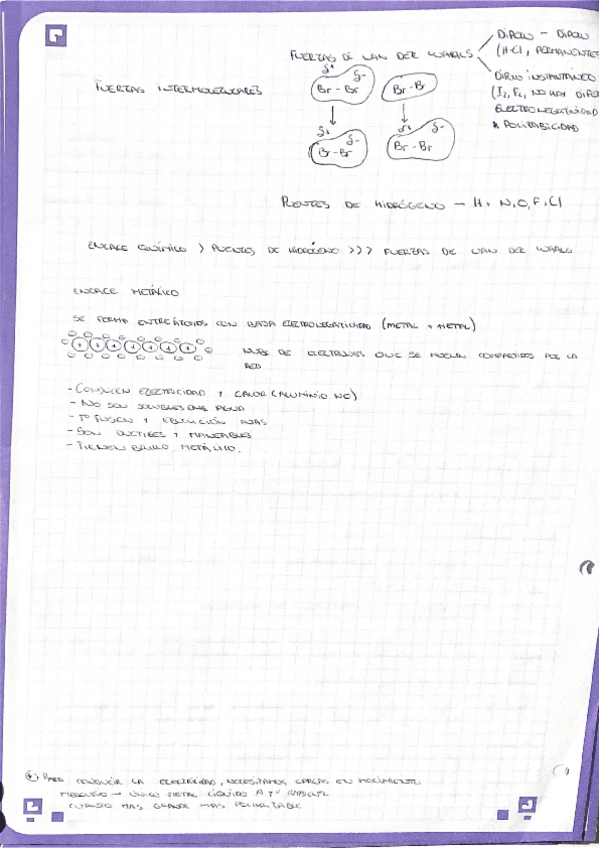 DIPOLO - DIPOLO
FUERZAS DE VAN DER WAALS
(H-Cl, PERMANENTES
DIPOLO INSTANTÁNEO
FUERZAS INTERMOLECULARES
δ+ δ-
Br - Br
Br - Br
(I2, F2, NO HAY DIFE
ELECTRONEGATIVIDAD
* POLIZABILIDAD
δ+ δ-
Br - Br
δ+ δ-
Br - Br
PUENTES DE HIDRÓGENO - H, N, O, F, Cl
ENLACE QUÍMICO > PUENTES DE HIDRÓGENO >>> FUERZAS DE VAN DER WAALS
ENLACE METÁLICO
SE FORMA ENTRE ÁTOMOS CON BAJA ELECTRONEGATIVIDAD (METAL + METAL)
+ + + + + +
NUBE DE ELECTRONES QUE SE MUEVEN COMPARTIDOS POR LA
RED
- CONDUCEN ELECTRICIDAD Y CALOR (ALUMINIO NO)
- NO SON SOLUBLES AGUA
- Tº FUSIÓN Y EBULLICIÓN ALTAS
- SON DUCTILES Y MALEABLES
- TIENEN BRILLO METÁLICO.
PARA CONDUCIR LA ELECTRICIDAD, NECESITAMOS CARGAS EN MOVIMIENTO
MERCURIO → ÚNICO METAL LÍQUIDO A Tº
CUANTO MAS GRANDE MAS POLARIZABLE